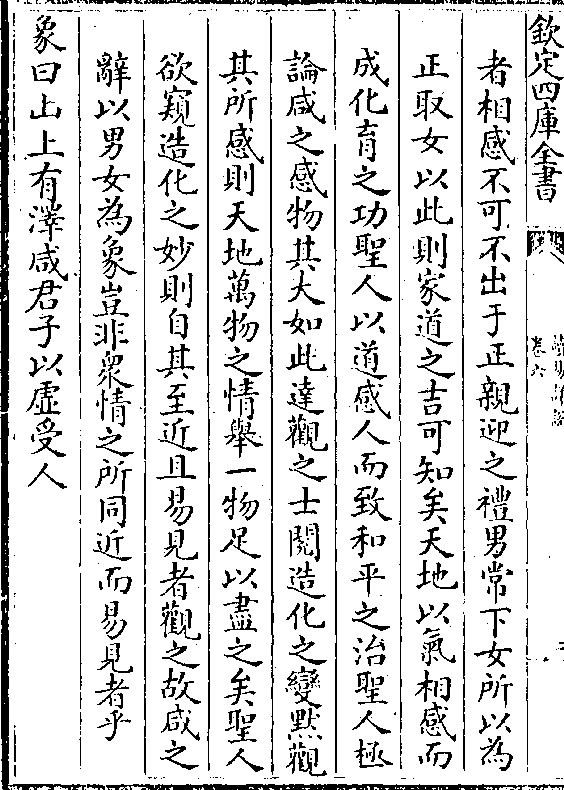 欽定四庫全書
卷六
者相感不可不出于正親迎之禮男常下女所以為
正取女以此則家道之吉可知矣天地以氣相感而
成化育之功聖人以道感人而致和平之治聖人極
論咸之感物其大如此達觀之士閱造化之變默觀
其所感則天地萬物之情舉一物足以盡之矣聖人
欲窺造化之妙則自其至近且易見者觀之故咸之
辭以男女為象豈非衆情之所同近而易見者乎
象曰山上有澤咸君子以虛受人